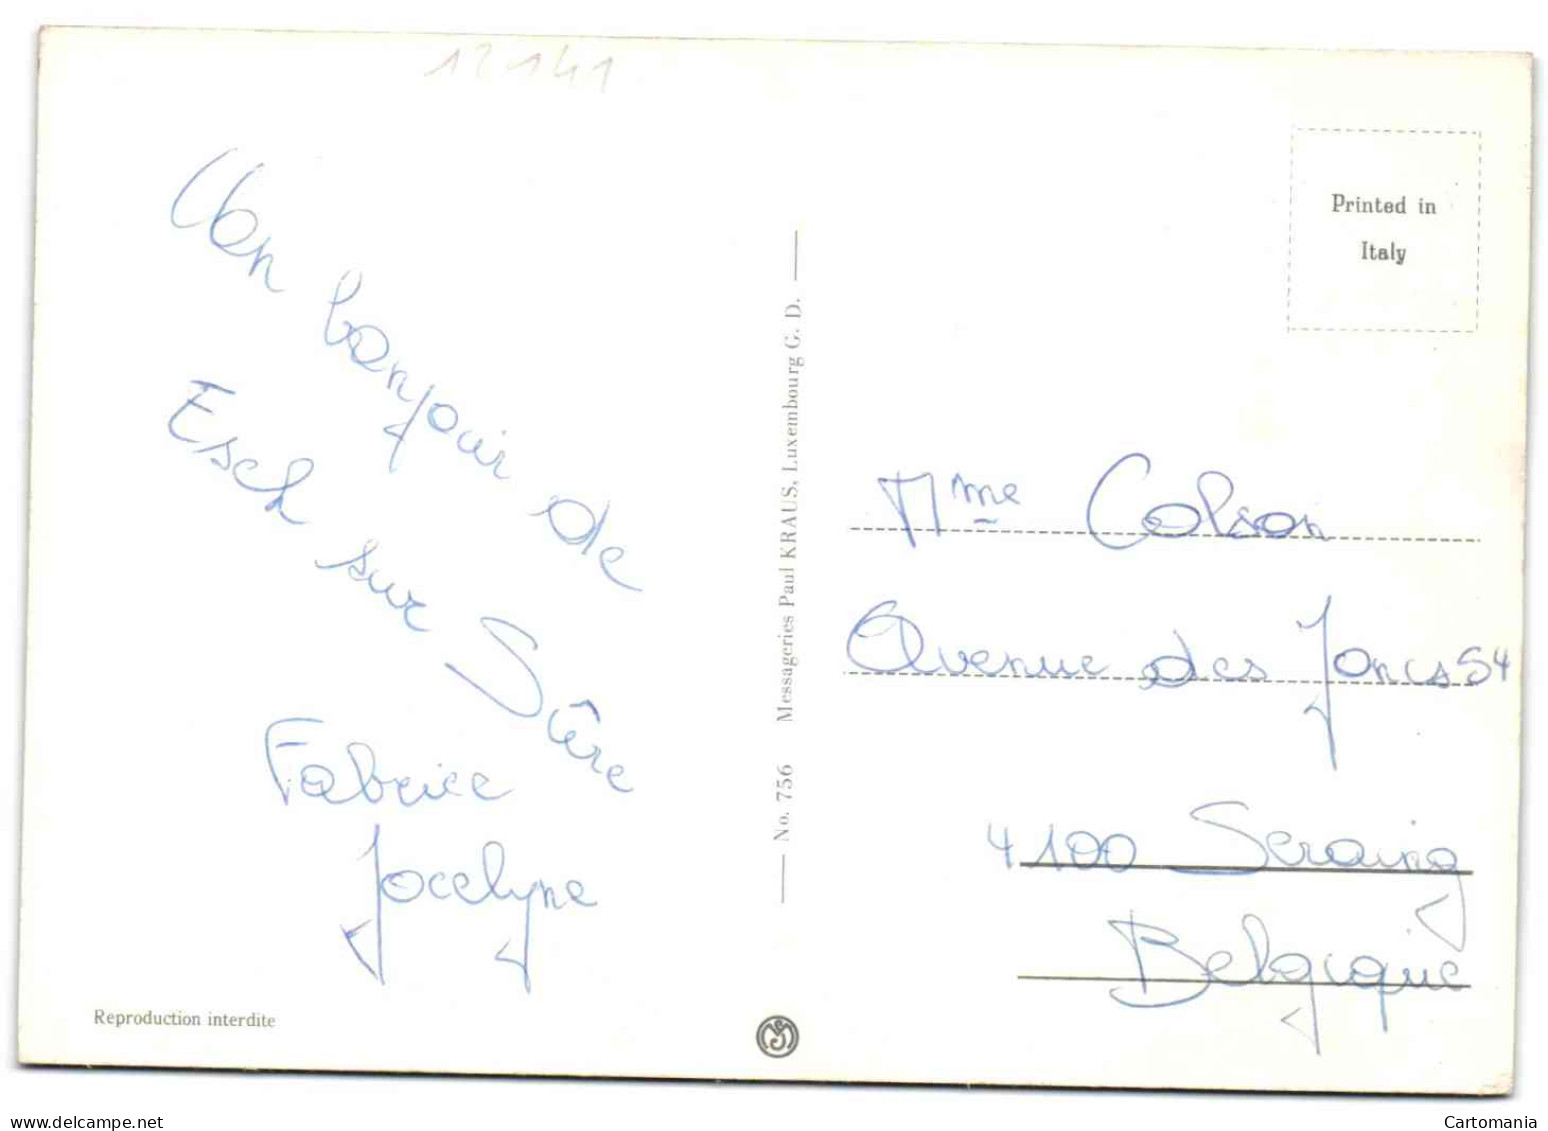 12141
Un bonjour de
Esch sur Sûre
Fabrice
Jocelyne
Reproduction interdite
No. 756 Messageries Paul KRAUS, Luxembourg G. D.
Printed in
Italy
Mme Colson
Avenue des Joncs 54
4100 Seraing
Belgique
www.delcampe.net
Cartomania